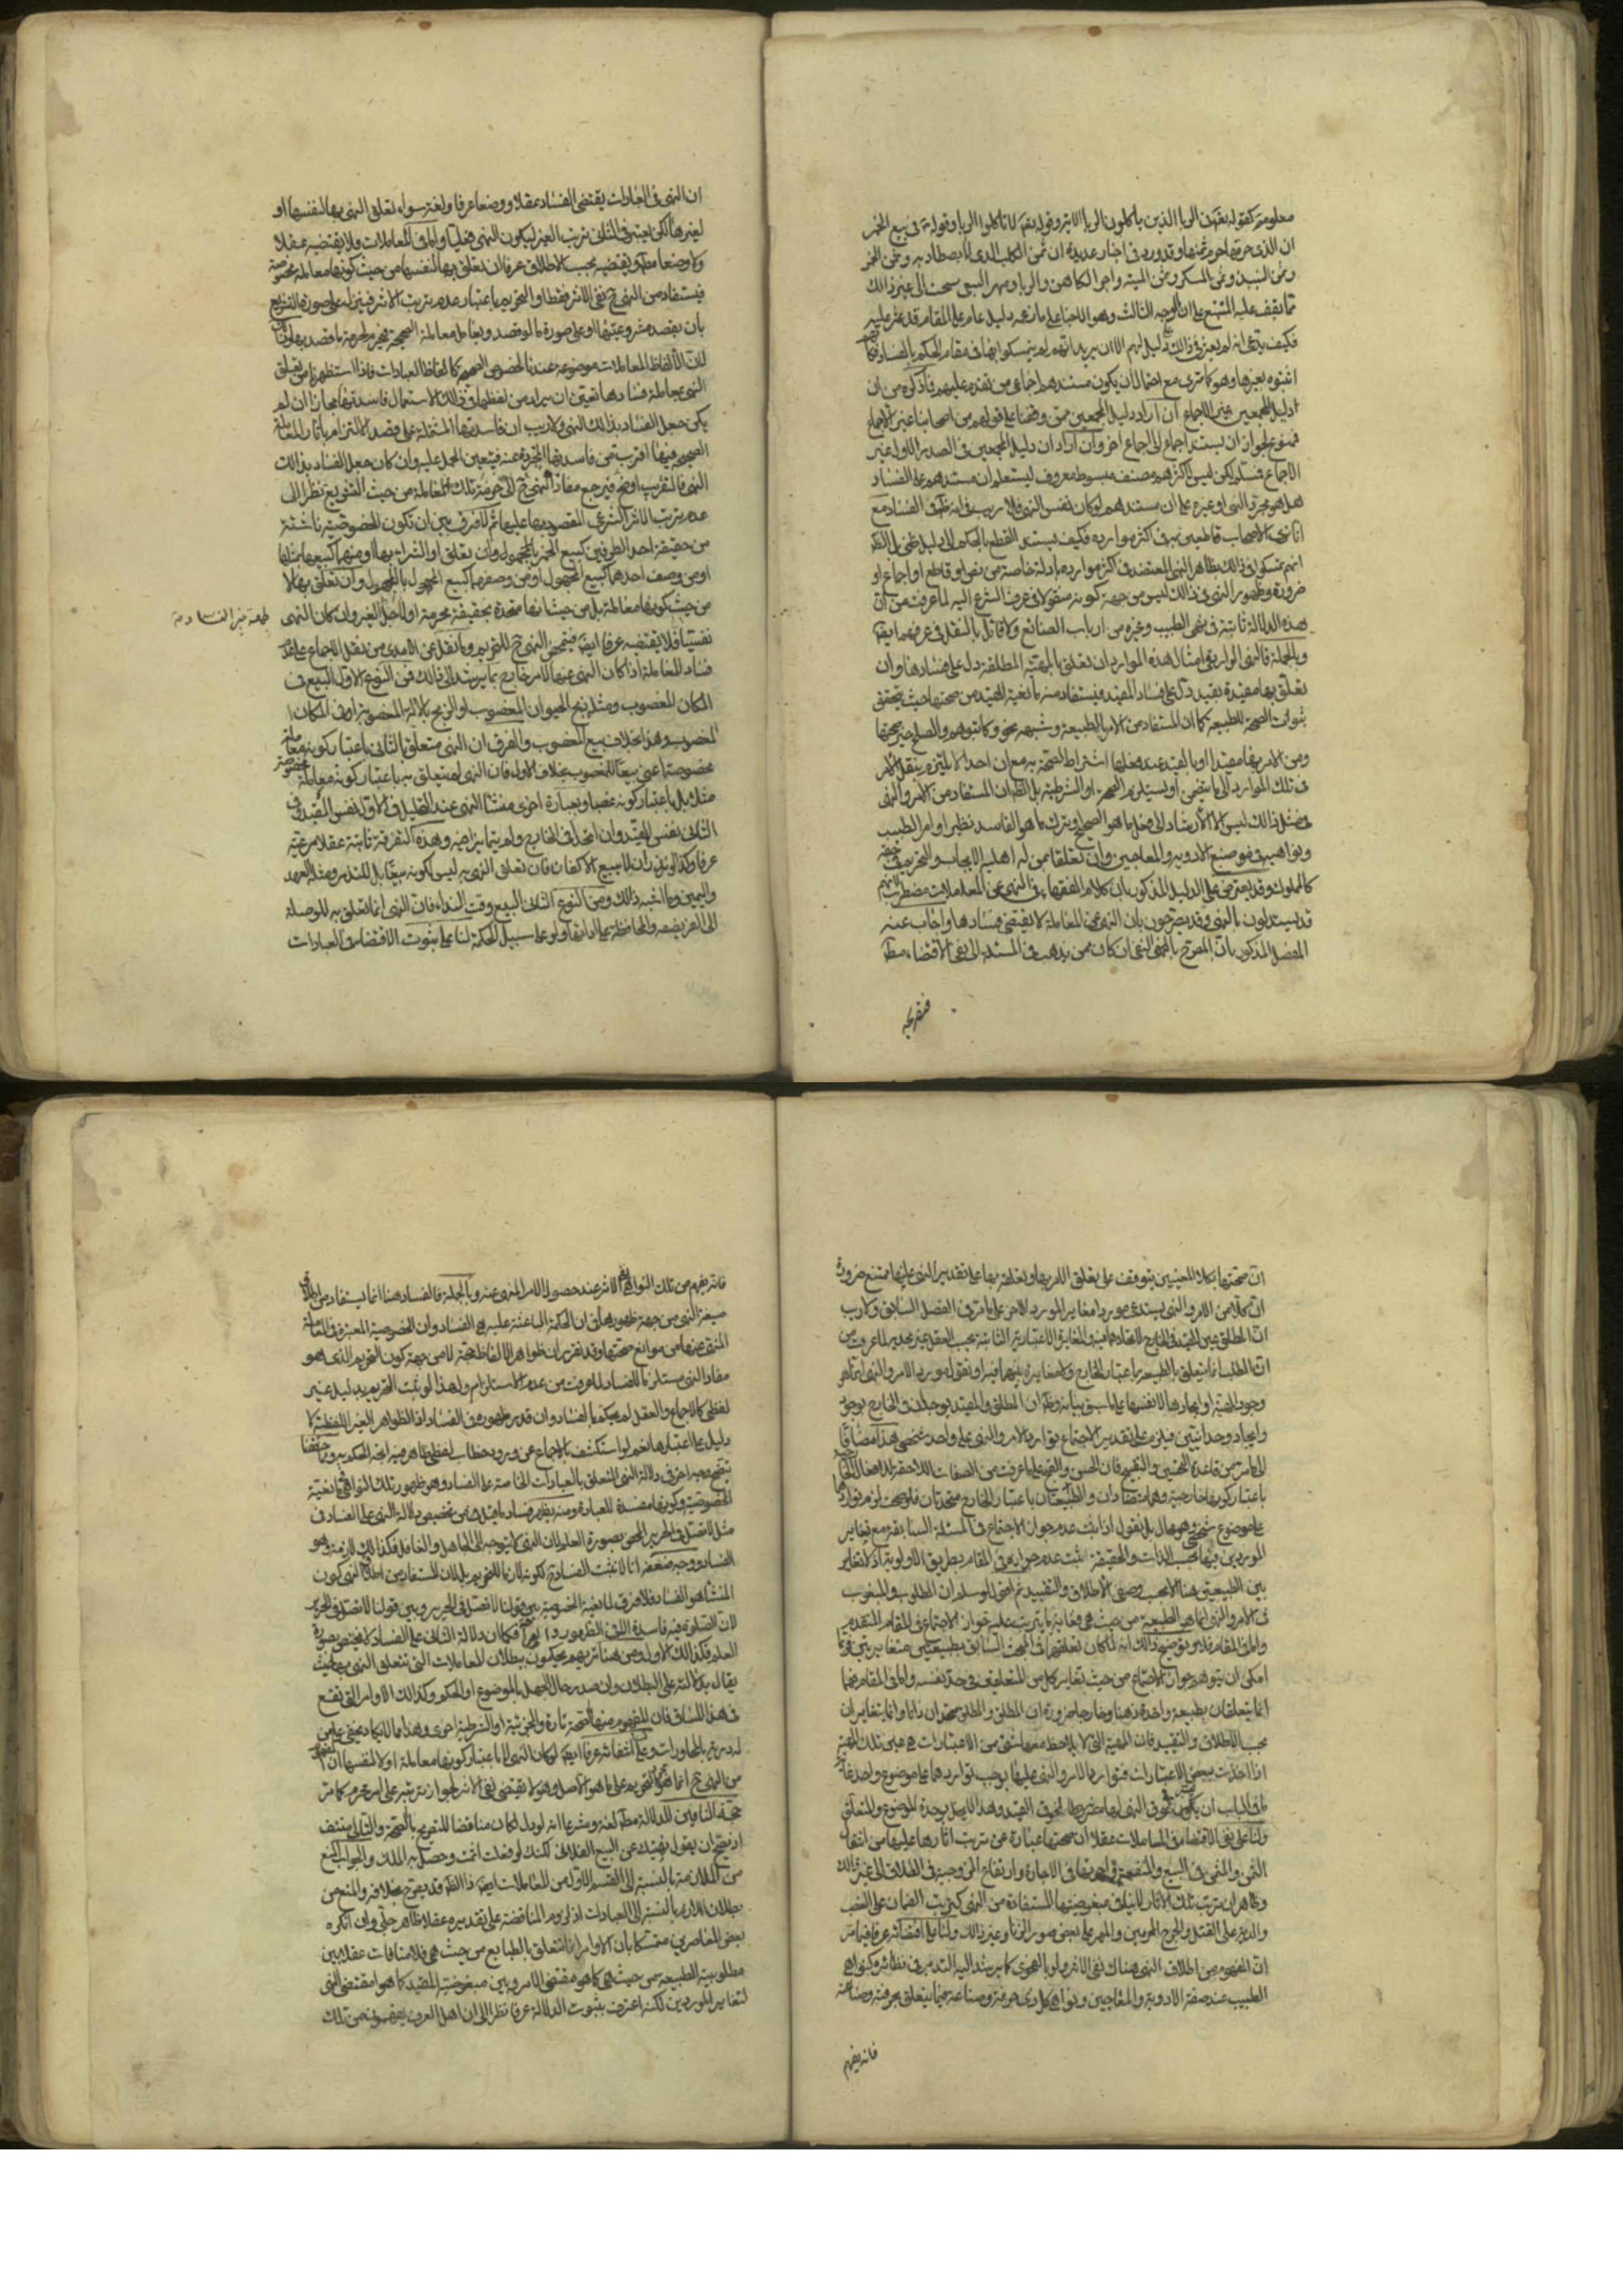 معلومة كقوله تعالى الذين ياكلون الربا الاية وقوله تعالى لا تاكلوا الربا وقوله في بيع الخمر
ان الذى حرمها حرم ثمنها وقد ورد في اخبار عديدة ان ثمن الكلب الذى لا يصطاد به وثمن الخمر
وثمن النبيذ وثمن المسكر وثمن الميتة واجر الكاهن والربا ومهر البغى سحت الى غير ذلك
مما يقف عليه المتتبع على ان الوجه الثالث وهو الاجماع دليل عام على المقام قد عثر عليه
فكيف يدعى انه لم يعثر في ذلك على دليل لهم الا ان يريد انهم لم يتمسكوا بها في مقام الحكم بالفساد
اثبتوه بغيرها وهو كما ترى مع احتمال ان يكون مستندهم اجماع من تقدم عليهم فما ذكره من ان
دليل المجمعين غير الاجماع ان اراد دليل المجمعين ممن وقفنا على قولهم من اصحابنا غير الاجماع
فممنوع لجواز ان يستند اجماع الى اجماع اخر وان اراد ان دليل المجمعين في الصدر الاول غير
الاجماع فمسلم لكن ليس لاكثرهم مصنف مبسوط معروف ليستعلم ان مستندهم على الفساد
هل هو مجرد النهى او غيره على ان مستندهم لو كان نفس النهى فلا ريب في انه ظاهر في الفساد مع
انا نرى الاصحاب قاطعين به في اكثر موارده فكيف يستند القطع بالحكم الى دليل ظنى بل الظاهر
انهم تمسكوا في ذلك بظاهر النهى المعتضد في اكثر موارده بادلة خاصة من نص او قاطع او اجماع او
ضرورة وظهور النهى في ذلك ليس من جهة كونه منقولا في عرف الشرع اليه لما عرفت من ان
هذه الدلالة ثابتة في نهى الطبيب وغيره من ارباب الصنائع ولا قائل بالنقل في عرفهم ايضا
وبالجملة فالنهى الوارد في امثال هذه الموارد ان تعلق بالمهية المطلقة دل على فسادها وان
تعلق بها مقيدة بقيد دل على فساد المقيد فيستفاد منه مانعية القيد من صحتها حيث يتحقق
ثبوت الصحة للطبيعة كما ان المستفاد من الامر بالطبيعة
ومن الامر بها مقيدا او بالقيد عند فعلها اشتراط الصحة به مع ان احدا لا يلتزم بنقل الامر
في تلك الموارد الى ما يقتضى او يستلزم الصحة او الشرطية بل الظاهر ان المستفاد من الامر والنهى
في مثل ذلك ليس الا الارشاد الى فعل ما هو الصحيح وترك ما هو الفاسد نظير اوامر الطبيب
ونواهيه في صنع الادوية والمعاجين وان تعلقا بمن له اهلية الايجاب والتحريم في حقه
كالمملوك وقد يعترض على الدليل المذكور بان كلام الفقهاء في النهى عن المعاملات مضطرب لانهم
قد يستدلون بالنهى وقد يصرحون بان النهى عن المعاملة لا يقتضى فسادها واجاب عنه
المفصل المذكور بان المصرح بالنفى ان كان ممن يذهب في المسئلة الى نفى الاقتضاء مطلقا
ان النهى في العبادات يقتضى الفساد عقلا ووضعا عرفا ولغة سواء تعلق النهى بها لنفسها او
لغيرها لكن يعتبر في الثانى ترتب الغير ليكون النهى فعليا واما في المعاملات فلا يقتضيه عقلا
ولا وضعا مطلقا ويقتضيه بحسب الاطلاق عرفا ان تعلق بها لنفسها من حيث كونها معاملة مخصوصة
فيستفاد من النهى ح نفى الاثر فقط او التحريم باعتبار عدم ترتب الاثر فينزله على صورة التشريع
بان يقصد مشروعيتها او على صورة ما لو قصد ويعامل معاملة الصحيحة
لان الالفاظ المعاملات موضوعة عندنا لخصوص الصحيحة كالفاظ العبادات فاذا استظهرنا من تعلق
النهى بمعاملة فسادها تعين ان يراد من لفظها في ذلك الاستعمال فاسدتها مجازا ان لم
يكن حمل الفساد بذلك النهى ولا ريب ان فاسدتها المشتملة على قصد الالتزام باثار المعاملة
الصحيحة فيها اقرب من فاسدتها المجردة عنه فيتعين الحمل عليه وان كان حمل الفساد بذلك
النهى فالتقريب اوضح فيرجع مفاد النهى ح الى حرمة تلك المعاملة من حيث التشريع نظرا الى
عدم ترتب الاثر الشرعى المقصود بها عليها ثم لا فرق بين ان تكون الخصوصية ناشئة
من حقيقة احد الطرفين كبيع الخمر بالمجهول وان تعلق او الشراء بها او منهما كبيعها بمثلها
او من وصف احدهما كبيع المجهول او من وصفهما كبيع المجهول بالمجهول وان تعلق بها لا
من حيث كونها معاملة بل من حيث انها متحدة بحقيقة محرمة او لاجل الغير وان كان النهى
نفسيا فلا يقتضيه عرفا ايضا فيتمحض النهى ح للتحريم وما نقل عن الامدى من نقل الاجماع على عدم
فساد المعاملة اذا كان النهى عنها لامر خارج مما يرشد الى ذلك فمن النوع الاول البيع في
المكان المغصوب ومثله ذبح الحيوان المغصوب او الذبح بالالة المغصوبة او في المكان
المغصوب وهذا بخلاف بيع المغصوب والفرق ان النهى متعلق بالثانى باعتبار كونه معاملة
مخصوصة اعنى بيعا للمغصوب بخلاف الاول فان النهى لم يتعلق به باعتبار كونه معاملة مخصوصة
مثلا بل باعتبار كونه غصبا وبعبارة اخرى منشا النهى عند التحليل في الاول نفس القيد وفي
الثانى نفس المقيد وان اتحدا في الخارج ولم يتمايزا فيه وهذه التفرقة ثابتة عقلا مرعية
عرفا وكذا لو نذر ان لا يبيع الاكفان فان تعلق النهى به ليس لكونه بيعا بل للنذر ومثله العهد
واليمين وما اشبه ذلك ومن النوع الثانى البيع وقت النداء فان النهى انما تعلق به للوصلة
الى الفريضة والمحافظة عليها ولو على سبيل الحكمة لنا على ثبوت الاقتضاء في العبادات
ان صحتها بكلا المعنيين يتوقف على تعلق الامر بها وتعلقه بها على تقدير النهى عنها ممتنع ضرورة
ان كلا من الامر والنهى يستدعى موردا مغايرا لمورد الاخر على ما مر في الفصل السابق ولا ريب
ان المطلق عين المقيد في الخارج لاتحادهما فيه والمغايرة الاعتبارية الثابتة بحسب العقل غير مجدية لما عرفت من
ان الطلب انما يتعلق بالطبيعة باعتبار الخارج ولا مغايرة بينهما فيه او نقول مورد الامر والنهى انما هو
وجود المهية وايجادها لا نفسها على ما سبق بيانه وظاهر ان المطلق والمقيد يوجدان في الخارج بوجود
وايجاد وحدانيتين فيلزم على تقدير الاجتماع توارد الامر والنهى على واحد شخصى هذا مضافا
الى ما مر من قاعدة التحسين والتقبيح فان الحسن والقبح على ما عرفت من الصفات اللاحقة للافعال الخارجية
باعتبار كونها خارجية وهما متضادان والطبيعتان باعتبار الخارج متحدتان فلو صحت لزم تواردهما
على موضوع شخصى وهو محال بل نقول اذا ثبت عدم جواز الاجتماع في المسئلة السابقة مع تغاير
الموردين فيها بحسب الذات والحقيقة ثبت عدم جوازه في المقام بطريق الاولوية اذ لا تغاير
بين الطبيعتين هنا الا بحسب وصفى الاطلاق والتقييد ثم لو سلم ان المطلوب والمبغوض
في الامر والنهى انما هو الطبيعة من حيث هى فغاية ما يترتب عليه جواز الاجتماع في المقام المتقدم
واما في المقام فلا وتوضيح ذلك انه لما كان تعلقهما في المبحث السابق بطبيعتين متغايرتين
امكن ان يتوهم جواز الاجتماع من حيث تغاير كل من المتعلقين في حد نفسه واما في المقام فهما
انما يتعلقان بطبيعة واحدة ذهنا وخارجا ضرورة ان المطلق والمطلق متحدان ذاتا وانما يتغايران
بحسب الاطلاق والتقييد فان المهية التى لا يلاحظ معها شئ من الاعتبارات هى عين تلك المهية
اذا اخذت ببعض الاعتبارات فتوارد الامر والنهى عليها يوجب تواردهما على موضوع واحد غاية
ما في الباب ان يكون لحوق النهى لها مشروطا بلحوق القيد وهذا لا يخل بوحدة الموضوع والمتعلق
ولنا على نفى الاقتضاء في المعاملات عقلا ان صحتها عبارة عن ترتب اثارها عليها من انتقال
الثمن والمثمن في البيع والمنفعة في الاجارة وارتفاع الزوجية في الطلاق الى غير ذلك
وظاهر ان ترتب تلك الاثار لا ينافى مبغوضيتها المستفادة من النهى كترتب الضمان على الغصب
والدية على القتل والجرح المحرمين والمهر على بعض صور الزنا وغير ذلك ولنا على اقتضائه عرفا فيما مر
ان المفهوم من اطلاق النهى هناك نفى الاثر ولو بالفحوى كما يرشد اليه التدبر في نظائره كنواهى
الطبيب عند صفة الادوية والمعاجين ونواهى كل ذى حرفة وصناعة فيما يتعلق بحرفته وصناعته
فانه يفهم
فانه يفهم من تلك النواهى نفى الاثر عند حصول الامر المنهى عنه وبالجملة فالفساد هنا انما يستفاد من اطلاق
صيغة النهى من جهة ظهورها في ان الحكمة الباعثة عليه هى الفساد وان الخصوصية المعتبرة في المعاملة
المنهى عنها من موانع صحتها وقد تقرر ان ظواهر الالفاظ حجة لا من جهة كون التحريم الذى هو
مفاد النهى مستلزما للفساد لما عرفت من عدم الاستلزام ولهذا لو ثبت التحريم بدليل غير
لفظى كالاجماع والعقل لم يحكم بالفساد وان قدر ظهوره في الفساد اذ الظواهر الغير اللفظية لا
دليل على اعتبارها نعم لو استكشف بالاجماع عن ورود خطاب لفظى ظاهر فيه اتجه الحكم به ومما حققنا
يتضح وجه اخر في دلالة النهى المتعلق بالعبادات الخاصة على الفساد وهو ظهور تلك النواهى في مانعية
الخصوصية وكونها مفسدة للعبادة ومنه يظهر فساد ما قيل من تخصيص دلالة النهى على الفساد في
مثل لا تصل في الحرير المحض بصورة العلم لان النهى لا يتوجه الى الجاهل والغافل فكذا لازمه وهو
الفساد ووجه ضعفه انا لا نثبت الفساد ح لكونه لازما للتحريم بل لان المستفاد من اطلاق النهى كون
المنشا هو الفساد فلا فرق لمانعية الخصوصية بين قولنا لا تصل في الحرير وبين قولنا لا تصل في الحرير
لان الصلوة فيه فاسدة فكما ان دلالة الثانى على الفساد لا يختص بصورة
العلم فكذلك الاول ومن هنا تريهم يحكمون ببطلان المعاملات التى تتعلق النهى بها حيث
يقال بدلالته على البطلان وان صدر حال الجهل بالموضوع او الحكم وكذلك الاوامر التى تقع
في هذا المساق فان المفهوم منها الصحة تارة والجزئية او الشرطية اخرى وهذا مما لا يكاد يخفى على من
له دربة بالمحاورات وعلى انتفائه عرفا ايضا لو كان النهى لا باعتبار كونها معاملة او لا لنفسها ان المفهوم
من النهى ح انما هو التحريم على ما هو الاصل وهو لا يقتضى نفى الاثر لجواز ترتبه على امر محرم كما مر
حجة النافين للدلالة مطلقا لغة وشرعا انه لو دل لكان مناقضا للتصريح بالصحة والتالى منتف
اذ يصح ان يقول نهيتك عن البيع الفلانى لكنك لو فعلت اثمت وحصل به الملك والجواب المنع
من الملازمة بالنسبة الى القسم الاول من المعاملات ايضا اذ الظاهر قد يصرح بخلافه والمنع من
بطلان اللازم بالنسبة الى العبادات اذ لزوم المناقضة على تقديره عقلا ظاهر جلى وان انكره
بعض المعاصرين متمسكا بان الاوامر انما تتعلق بالطبايع من حيث هى فلا منافات عقلا بين
مطلوبية الطبيعة من حيث هى كما هو مقتضى الامر وبين مبغوضية المقيد كما هو مقتضى النهى
لتغاير الموردين لكنه اعترف بثبوت الدلالة عرفا نظرا الى ان اهل العرف يفهمون من تلك